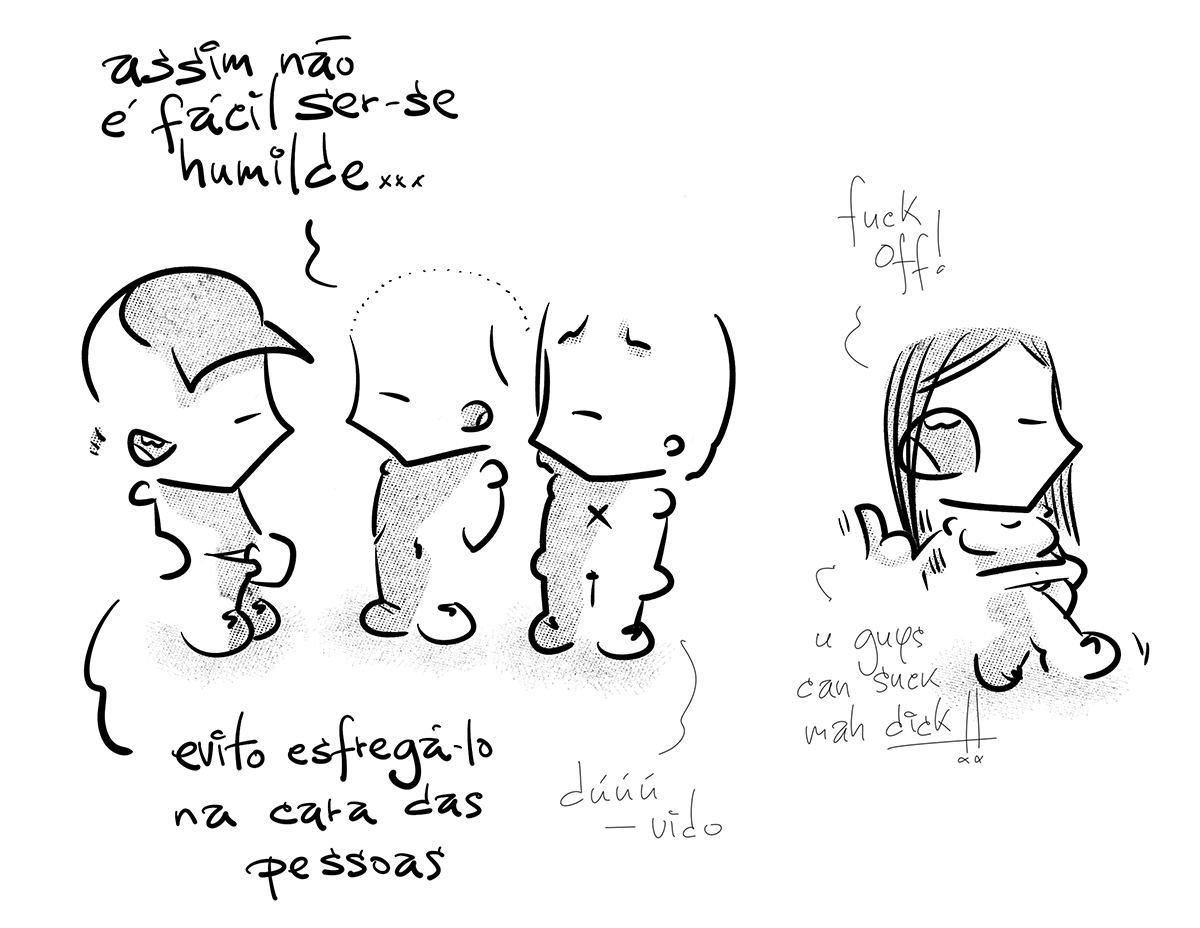 assim não
é fácil ser-se
humilde...
fuck
off!
evito esfregá-lo
na cara das
pessoas
dúúú
- vido
u guys
can suck
mah dick!!